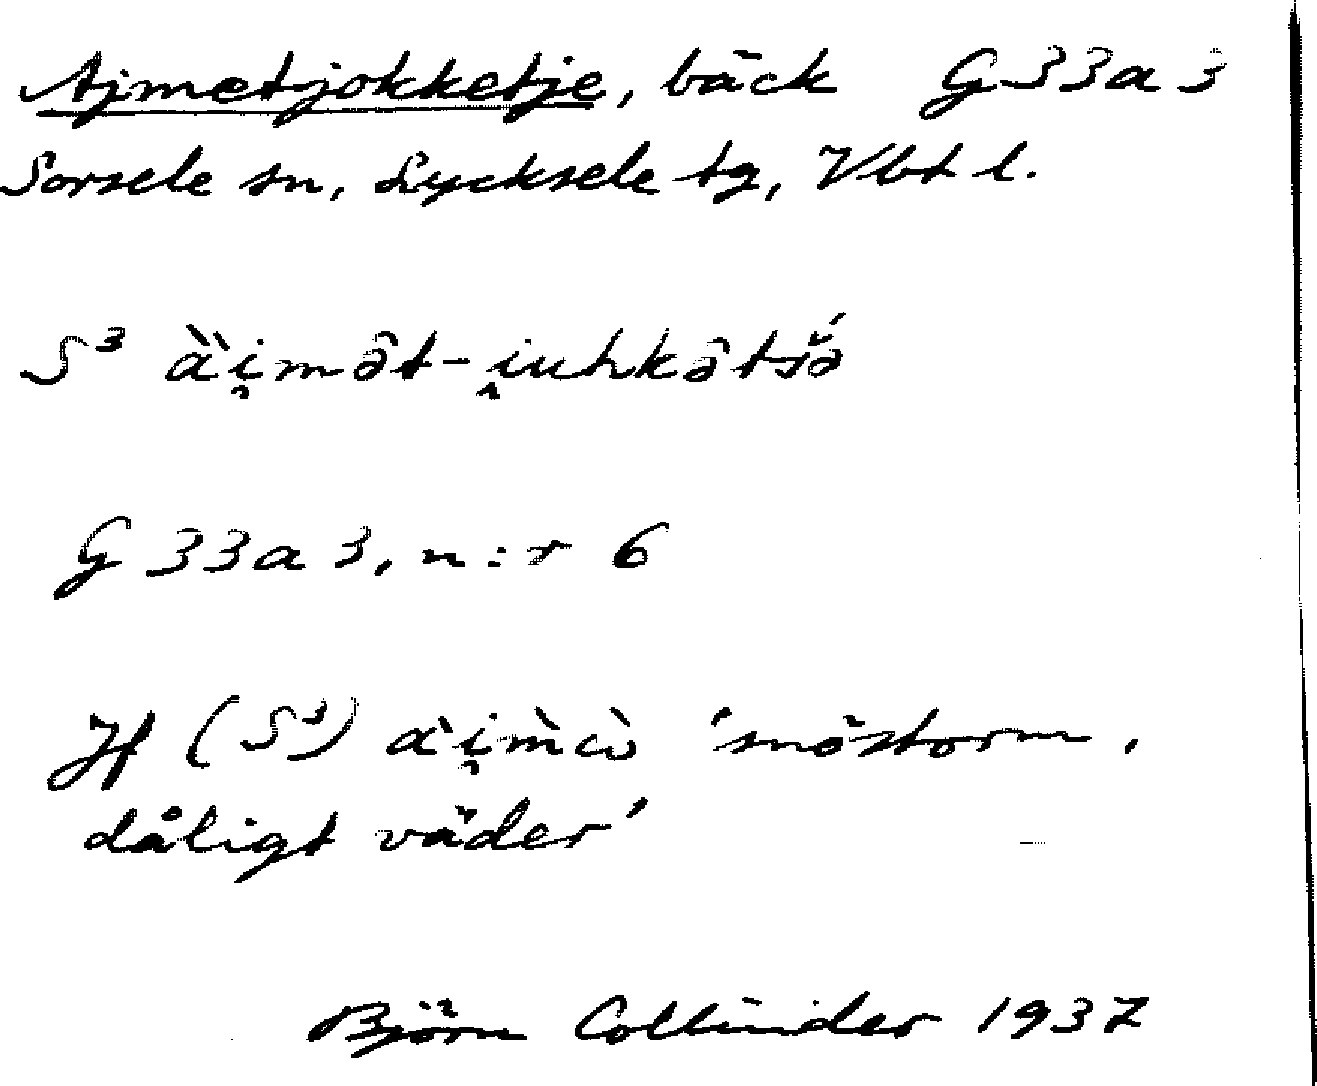 Ajmetjokketje, bäck G33a3
Sorsele sn, Lycksele tg, Vbt l.
S³ 
G 33a 3, n:r 6
Jf (S³) 'snöstorm,
dåligt väder'
Björn Collinder 1937